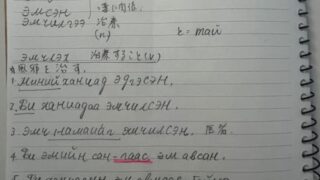 эмсэн
эмчилгээ 治療
(n) と = тай
эмчлэх 治療すること (v)
風邪を治す。
1. Миний ханиад эдгэсэн.
2. Би ханиадаа эмчилсэн.
3. Эмч намайг эмчилсэн.
4. Би эмийн сан-гаас эм авсан.